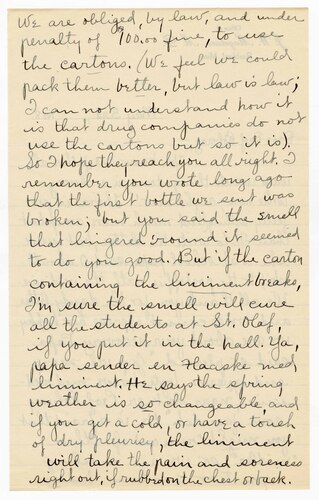 We are obliged, by law, and under
penalty of $100.00 fine, to use
the cartons. (We feel we could
pack them better, but law is law;
I can not understand how it
is that drug companies do not
use the cartons but so it is).
So I hope they reach you all right. I
remember you wrote long ago
that the first bottle we sent was
broken; but you said the smell
that lingered 'round it seemed
to do you good. But if the carton
containing the liniment breaks,
I'm sure the smell will cure
all the students at St. Olaf,
if you put it in the hall. Ya,
papa sender en flaske med
liniment. He says the spring
weather is so changeable, and
if you get a cold, or have a touch
of dry pleurisy, the liniment
will take the pain and soreness
right out, if rubbed on the chest or back.